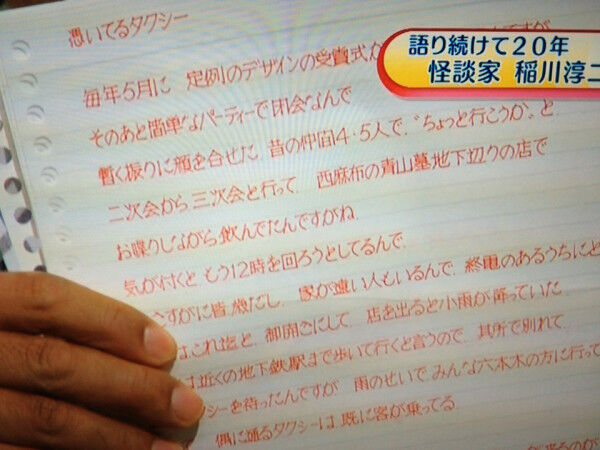 憑いてるタクシー
語り続けて20年
怪談家 稲川淳二
毎年5月に 定例のデザインの受賞式が
そのあと簡単なパーティーで閉会なんで
暫く振りに顔を合せた、昔の仲間4・5人で、"ちょっと行こうか"と
二次会から、三次会と行って、西麻布の青山墓地下辺りの店で
お喋りしながら、飲んでたんですがね、
気が付くと、もう12時を回ろうとしてるんで、
さすがに皆歳だし、家が遠い人もいるんで、終電のあるうちにと
はこれ迄と、御開きにして、店を出ると小雨が降っていた
は近くの地下鉄駅まで歩いて行くと言うので、其所で別れて
クシーを待ったんですが 雨のせいで、みんな六本木の方に行って
偶に通るタクシーは、既に客が乗ってる